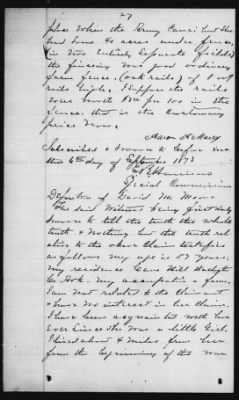 27
place when the Army came: but she
had some 40 acres under fence,
in two entirely separate fields,
the fencing was good ordinary
farm fence. (oak rails) of 8
rails high. I suppose the rails
were worth per 100 in the
fence. that is the customary
price now.
Aaron
Subscribed & Sworn to before me
the 6th day of September 1873
Special Commissioner
Deposition of David M. Moore
The said witness being first duly
sworn to tell the truth the whole
truth & nothing but the truth rel
ative to the above Claim testifies
as follows my age is 57 years.
my residence Cane Hill Washgtn
Co. Ark. my occupation a farmer,
I am not related to the Claimant
& have no interest in her Claim.
I have been acquainted with her
Ever since she was a little Girl.
I lived about 4 miles from her
from the beginning of the war